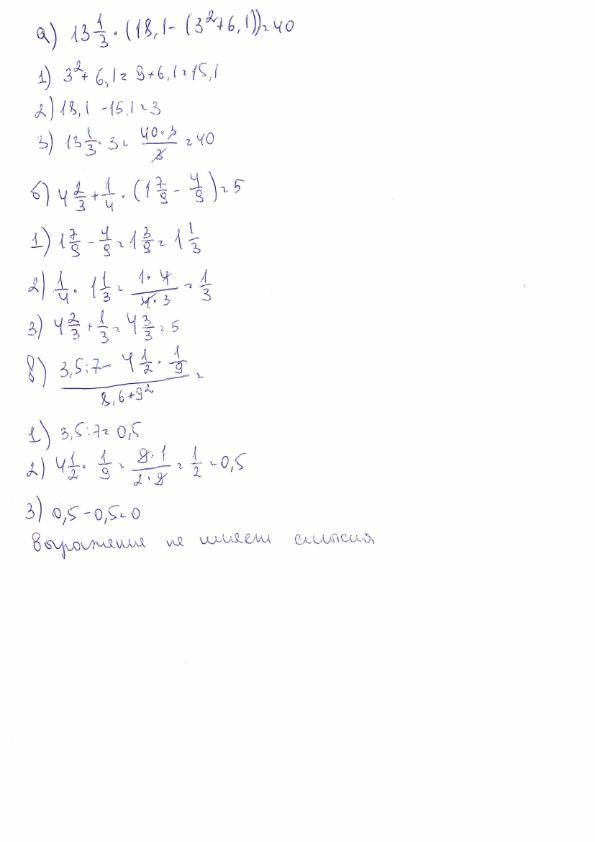 а) 13 1/3 · (18,1 - (3² + 6,1)) = 40
1) 3² + 6,1 = 9 + 6,1 = 15,1
2) 18,1 - 15,1 = 3
3) 13 1/3 · 3 = (40 · 3)/3 = 40
б) 4 2/3 + 1/4 · (1 7/9 - 4/9) = 5
1) 1 7/9 - 4/9 = 1 3/9 = 1 1/3
2) 1/4 · 1 1/3 = (1 · 4)/(4 · 3) = 1/3
3) 4 2/3 + 1/3 = 4 3/3 = 5
в) (3,5 : 7 - 4 1/2 · 1/9)/(8,6 + 9²) =
1) 3,5 : 7 = 0,5
2) 4 1/2 · 1/9 = (9 · 1)/(2 · 9) = 1/2 = 0,5
3) 0,5 - 0,5 = 0
Выражение не имеет смысла